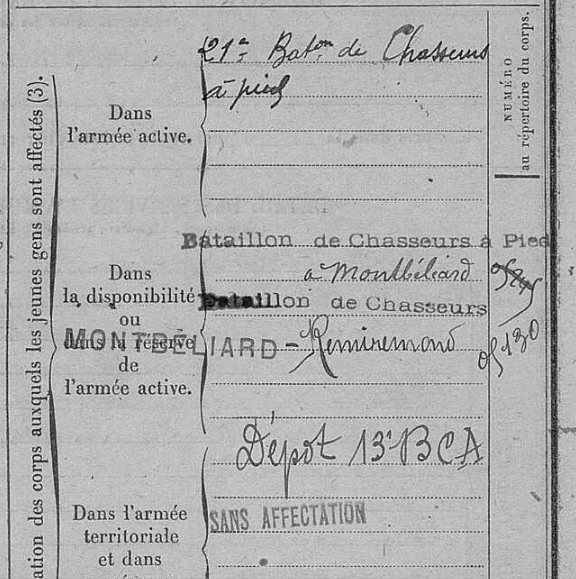 NUMÉRO
au répertoire du corps.
ation des corps auxquels les jeunes gens sont affectés (3).
Dans
l'armée active.
21e Baton de Chasseurs
à pied
Dans
la disponibilité
ou
dans la réserve
de
l'armée active.
Bataillon de Chasseurs à Pied
à Montbéliard
Bataillon de Chasseurs
MONTBÉLIARD - Remiremont
Dépot 13e BCA
Dans l'armée
territoriale
et dans
SANS AFFECTATION